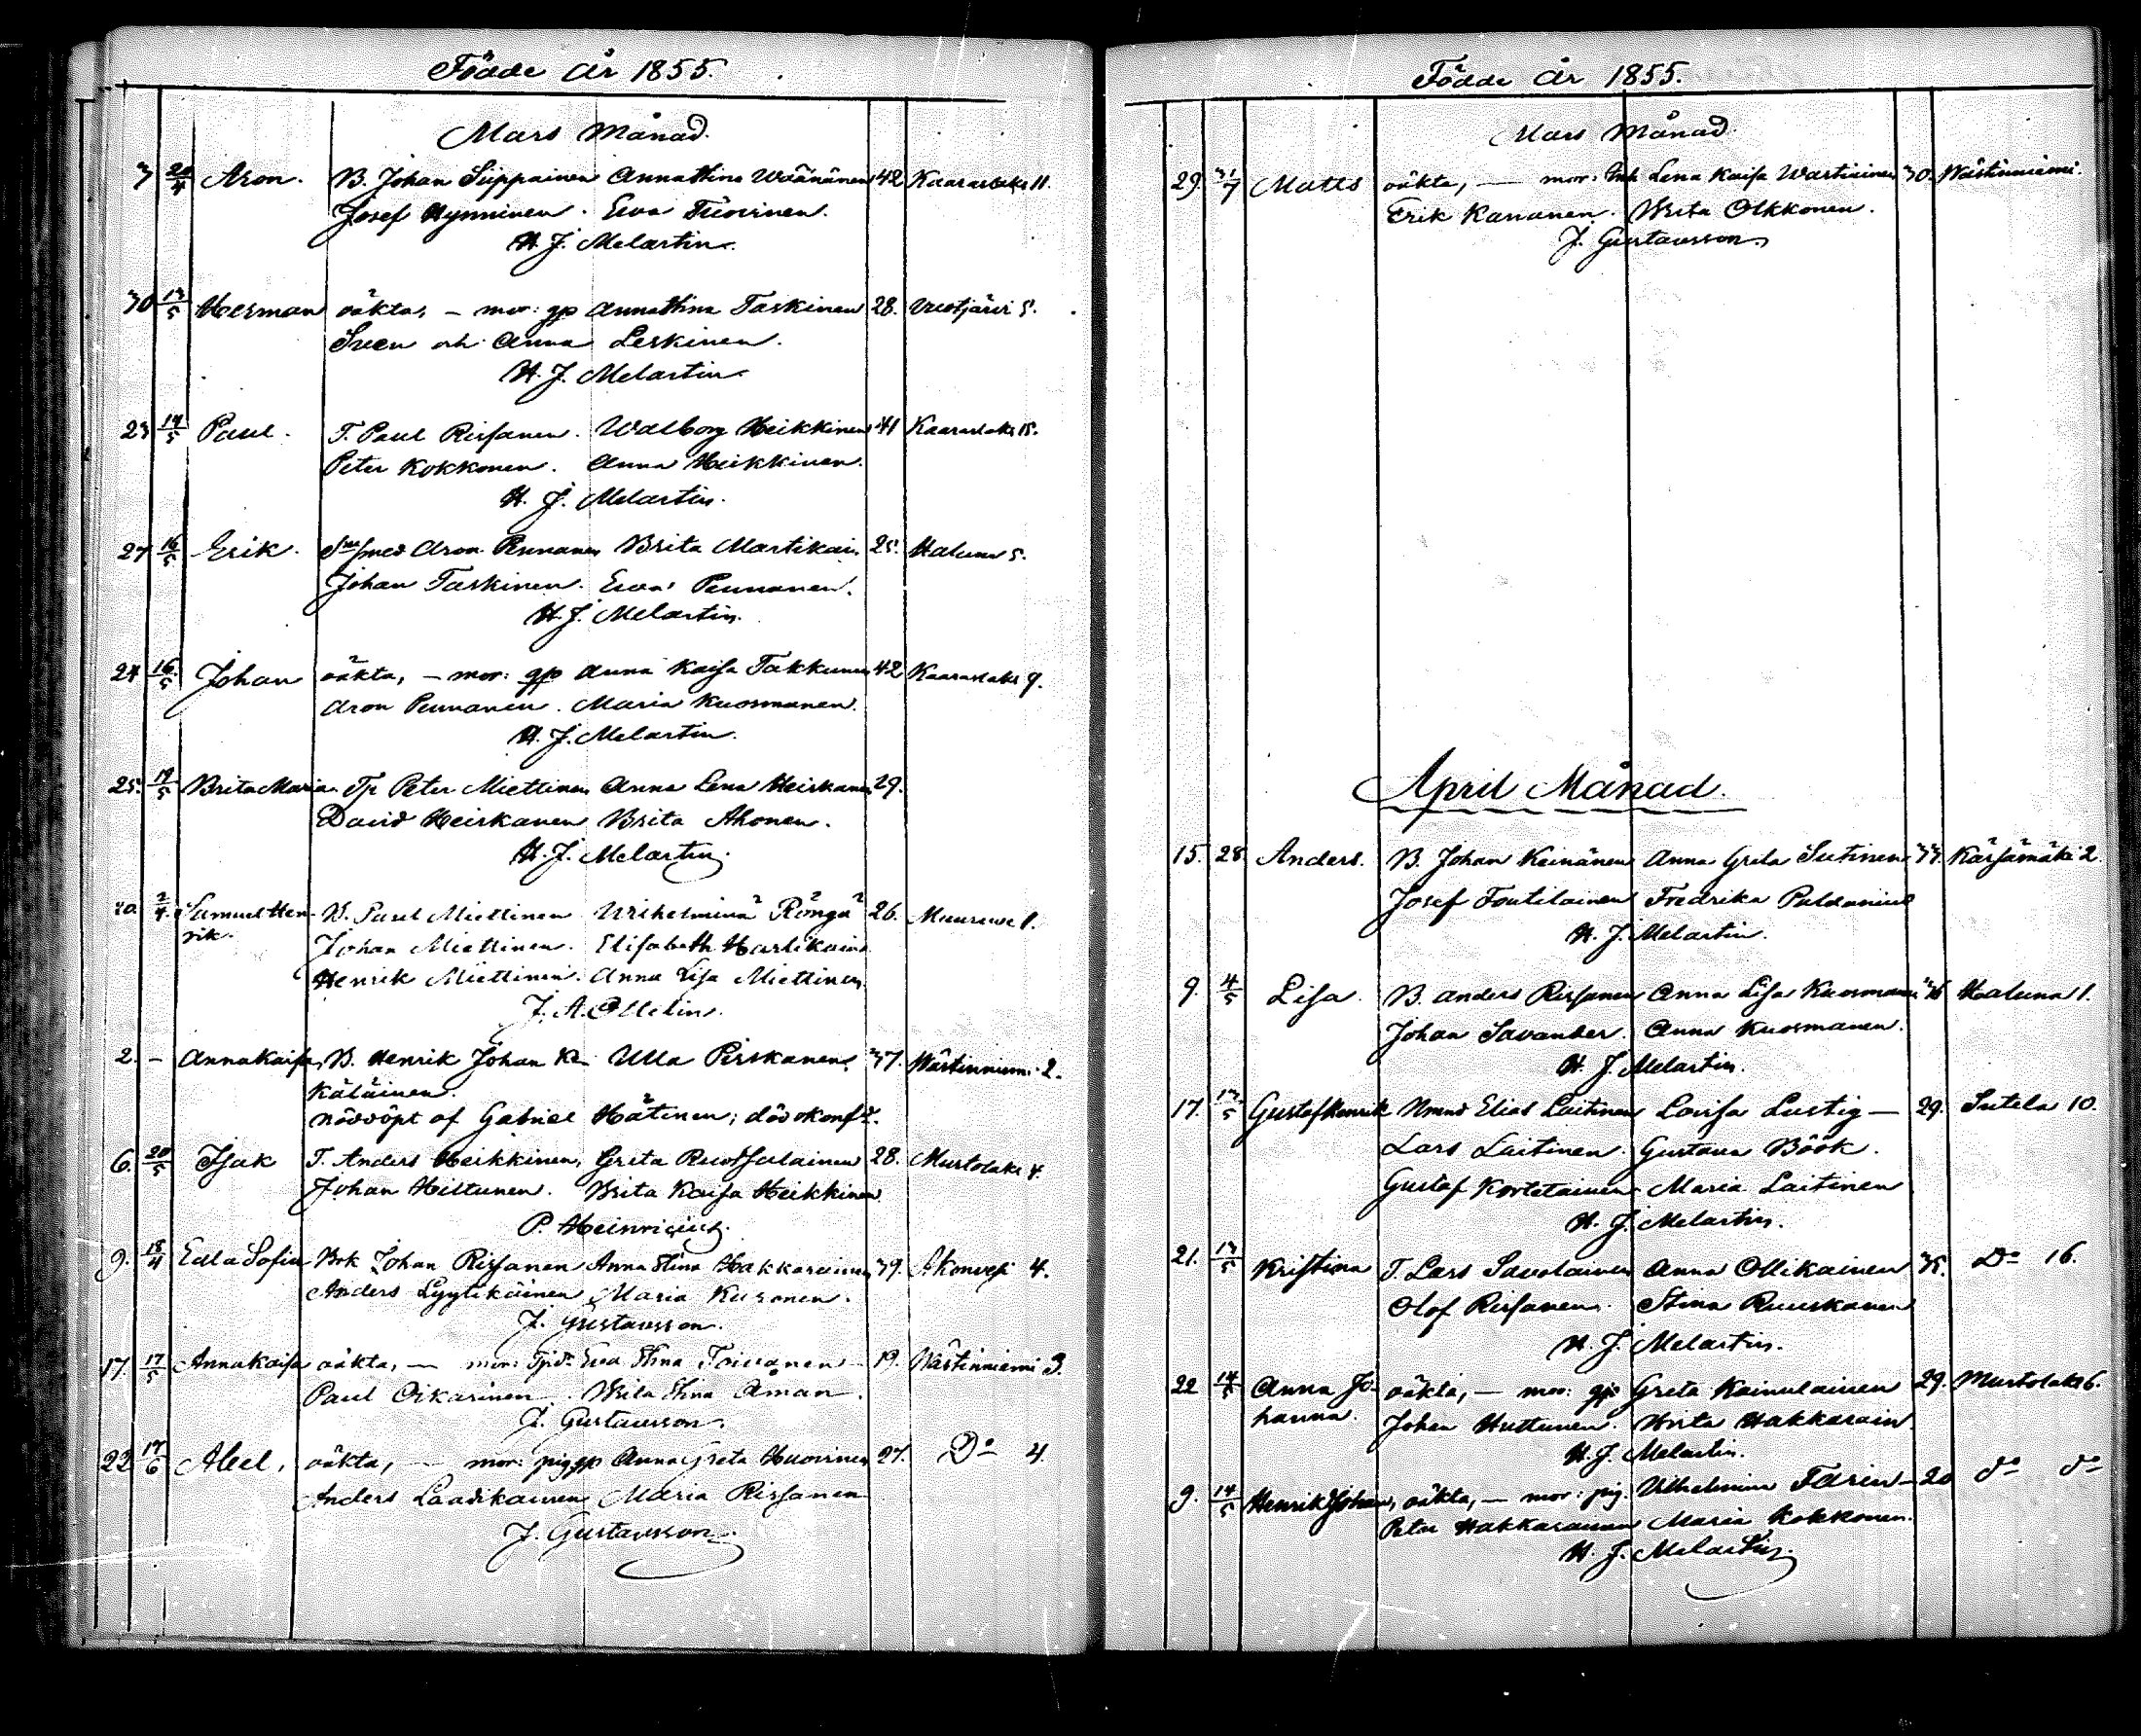 Födde år 1855.
Mars Månad.
3 20/4 Aron. B. Johan Siippainen Anna Stina Wäänänen 42 Kaaraslaks 11.
Josef Hynninen. Ewa Tuovinen.
H. J. Melartin.
30 13/5 Herman oäkta, – mor: gp Anna Stina Taskinen 28. Vuotjärvi 5.
Sven och Anna Leskinen.
H. J. Melartin
23 14/5 Paul. T. Paul Rissanen. Walborg Heikkinen 41 Kaaraslaks 15.
Peter Kokkonen. Anna Heikkinen.
H. J. Melartin.
27 16/5 Erik. Aron Pennanen Brita Martikain 25. Haluna 5.
Johan Taskinen. Ewa Pennanen.
H. J. Melartin.
24 16/5 Johan oäkta, – mor: gp Anna Kaisa Takkunen 42 Kaaraslaks 9.
Aron Pennanen. Maria Kuosmanen.
H. J. Melartin.
25. 19/5 Brita Maria Tp Peter Miettinen Anna Lena Heiskanen 29.
David Heiskanen Brita Ahonen.
H. J. Melartin.
20. 2/4 Samuel Hen- B. Paul Miettinen Wilhelmina Röngä 26. Muuruwe 1.
rik. Johan Miettinen. Elisabeth Hartikain
Henrik Miettinen. Anna Lisa Miettinen
J. A. Ollelin.
2. – Anna Kaisa, B. Henrik Johan Kä- Ulla Pirskanen. 37. Wästinniemi 2.
käläinen.
nöddöpt af Gabriel Hätinen; död okonf.
6. 20/5 Isak T. Anders Heikkinen, Greta Ruotsalainen 28. Murtolaks 4.
Johan Hiltunen. Brita Kaisa Heikkinen
P. Heinricius.
9. 18/4 Eulla Sofia Brk Johan Rissanen Anna Stina Hakkarainen 39. Akonvesi 4.
Anders Lyytikäinen Maria Kuronen.
J. Gustavsson.
17. 17/5 Anna Kaisa oäkta, – mor: Tjd. Ewa Stina Toivanen 19. Wästinniemi 3.
Paul Oikarinen. Brita Stina Åman.
J. Gustavsson.
22 17/6 Abel, oäkta, – mor: pig gp Anna Greta Huovinen 27. Do 4.
Anders Laadikainen Maria Rissanen
J. Gustavsson.
Födde år 1855.
Mars Månad.
29. 31/7 Matts oäkta, – mor: Inh Lena Kaisa Wartiainen 30. Wästinniemi.
Erik Kananen. Brita Olkkonen.
J. Gustavsson.
April Månad.
15. 28. Anders. B. Johan Keinänen Anna Greta Sutinen 33. Kärsämäki 2.
Josef Toutilainen Fredrika Paldanius
H. J. Melartin.
9. 4/5 Lisa. B. Anders Rissanen Anna Lisa Kuosmanen 36 Haluna 1.
Johan Savander. Anna Kuosmanen.
H. J. Melartin.
17. 13/5 Gustaf Henrik Nmnd Elias Laitinen Lovisa Lustig – 29. Sutela 10.
Lars Laitinen. Gustava Böök.
Gustaf Kortelainen Maria Laitinen
H. J. Melartin.
21. 13/5 Kristina T. Lars Savolainen Anna Ollikainen 35. Do 16.
Olof Rissanen. Stina Ruuskanen
H. J. Melartin.
22 14/5 Anna Jo- oäkta, – mor: gp Greta Kainulainen 29. Murtolaks 6.
hanna. Johan Huttunen. Brita Hakkarain
H. J. Melartin.
9. 14/5 Henrik Johan, oäkta, – mor: pig. Wilhelmina Farin – 20 do do
Peter Hakkarainen Maria Kokkonen.
H. J. Melartin.